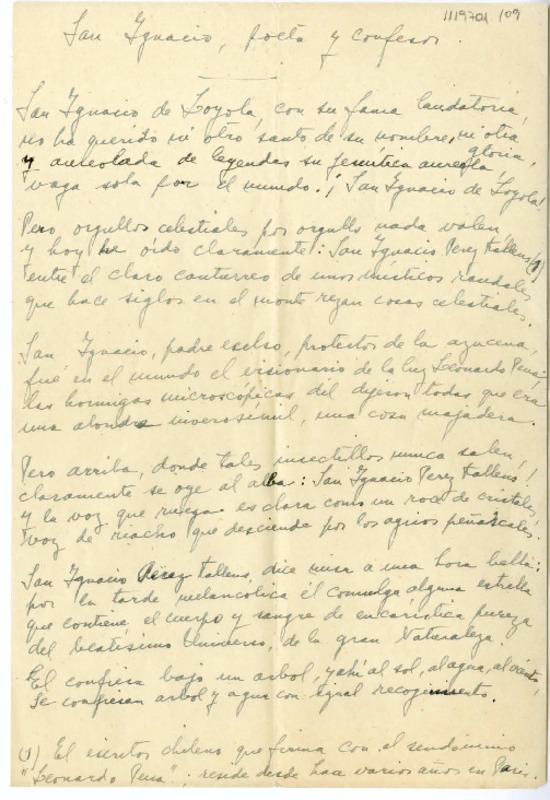 1119701 /09
San Ignacio, poeta y confesor.
San Ignacio de Loyola, con su fama laudatoria,
no ha querido ni otro santo de su nombre, ni otra gloria,
y aureolada de leyendas su jesuítica aureola,
vaga sola por el mundo. ¡San Ignacio de Loyola!
Pero orgullos celestiales por orgullo nada valen
y hoy he oído claramente: San Ignacio Perez Kallens (1)
entre el claro canturreo de unos místicos raudales
que hace siglos en el monte rezan cosas celestiales.
San Ignacio, padre excelso, protector de la azucena,
fué en el mundo el visionario de la luz Leonardo Pena:
las hormigas microscópicas del dijeron todas que era
una alondra inverosímil, una cosa majadera.
Pero arriba, donde tales insectillos nunca salen,
claramente se oye al alba: San Ignacio Perez Kallens!
y la voz que ruega es clara como un roce de cristales,
voz de riacho que desciende por los agrios peñascales.
San Ignacio Pérez Kallens, dice misa a una hora bella:
por la tarde melancolica él comulga alguna estrella
que contiene el cuerpo y sangre de eucarística pureza
del beatísimo Universo, de la gran Naturaleza.
El confiesa bajo un arbol, y ahí al sol, al agua, al viento,
se confiesan arbol y agua con igual recogimiento.
(1) El escritor chileno que firma con el seudónimo
"Leonardo Pena", reside desde hace varios años en Paris.